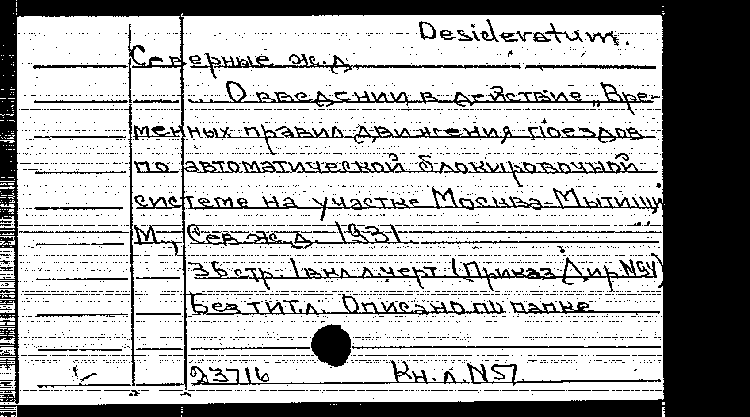 Desideratum.
Северные ж.д.
... О введении в действие „Вре-
менных правил движения поездов
по автоматической блокировочной
системе на участке Москва-Мытищи
М., Сев.ж.д. 1931.
36 стр. 1 вкл.л.черт (Приказ Дир
Без тит.л. Описано по папке
23716 Кн.л.N57.